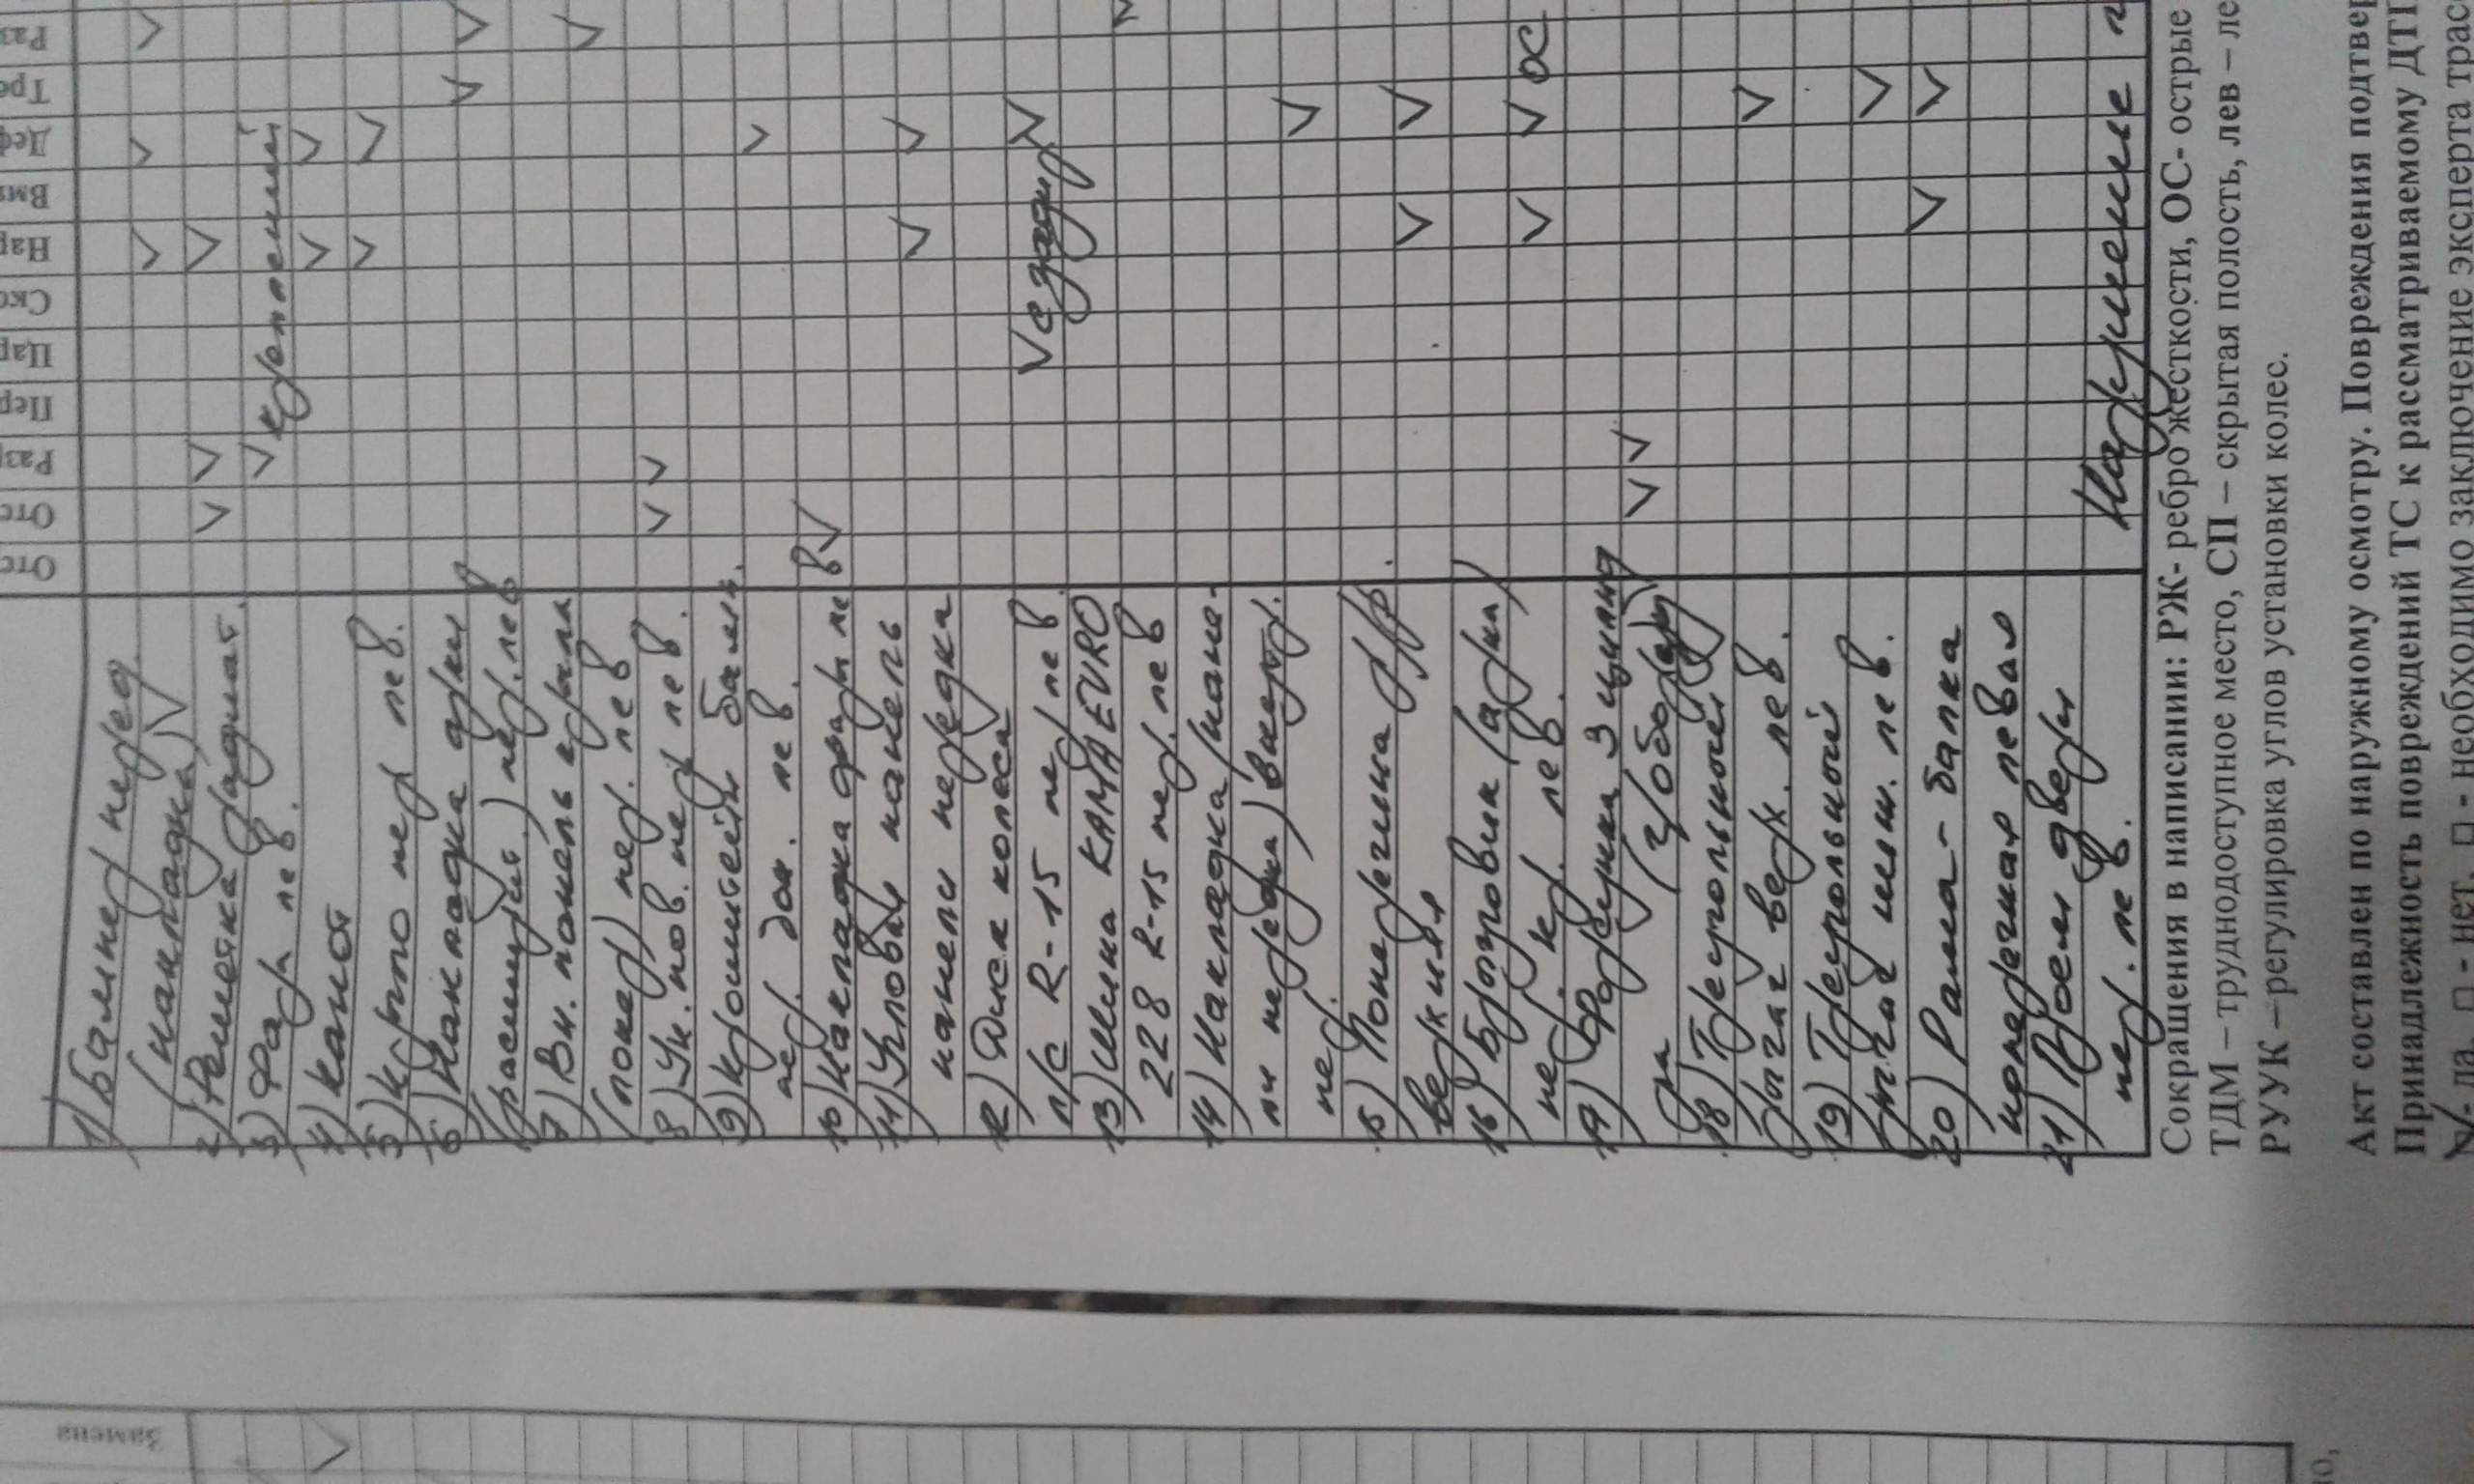 Отс
Отс
Раз
Пер
Цар
Ско
Нар
Вм
Деф
Тре
Раз
1) Бампер перед.
(накладка)
2) Решетка радиат.
3) Фара лев. креплений
4) Капот
5) Крыло пер лев.
6) Накладка арки
(расширит.) пер. лев
7) Вн. панель крыла
(локер) пер. лев
8) Ук. пов. пер лев.
9) Кронштейн бамп.
пер. лев.
10) Накладка фары лев
11) Угловая панель
панели передка
12) Диск колеса с задир
л/с R-15 пер лев
13) Шина КАМА EVRO
228 R-15 пер. лев
14) Накладка (пане-
ли передка)
пер.
15) Поперечина
верхняя
16) Брызговик (арка) ОС
пер. к. лев.
17) Форсунка
18) Треугольный
рычаг верх. лев.
19) Треугольной
рычаг ниж. лев.
20) Рама-балка
поперечная левая
21) Проем двери Нарушение
пер. лев.
Сокращения в написании: РЖ- ребро жесткости, ОС- острые
ТДМ – труднодоступное место, СП – скрытая полость, лев – ле
РУУК – регулировка углов установки колес.
Акт составлен по наружному осмотру. Повреждения подтвер
Принадлежность повреждений ТС к рассматриваемому ДТП
- да, □ - нет, □ - необходимо заключение эксперта трас
Замена